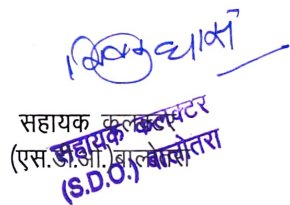 सहायक कलक्टर
(एस.डी.ओ.)बालोतरा
सहायक कलक्टर
(S.D.O.) बालोतरा